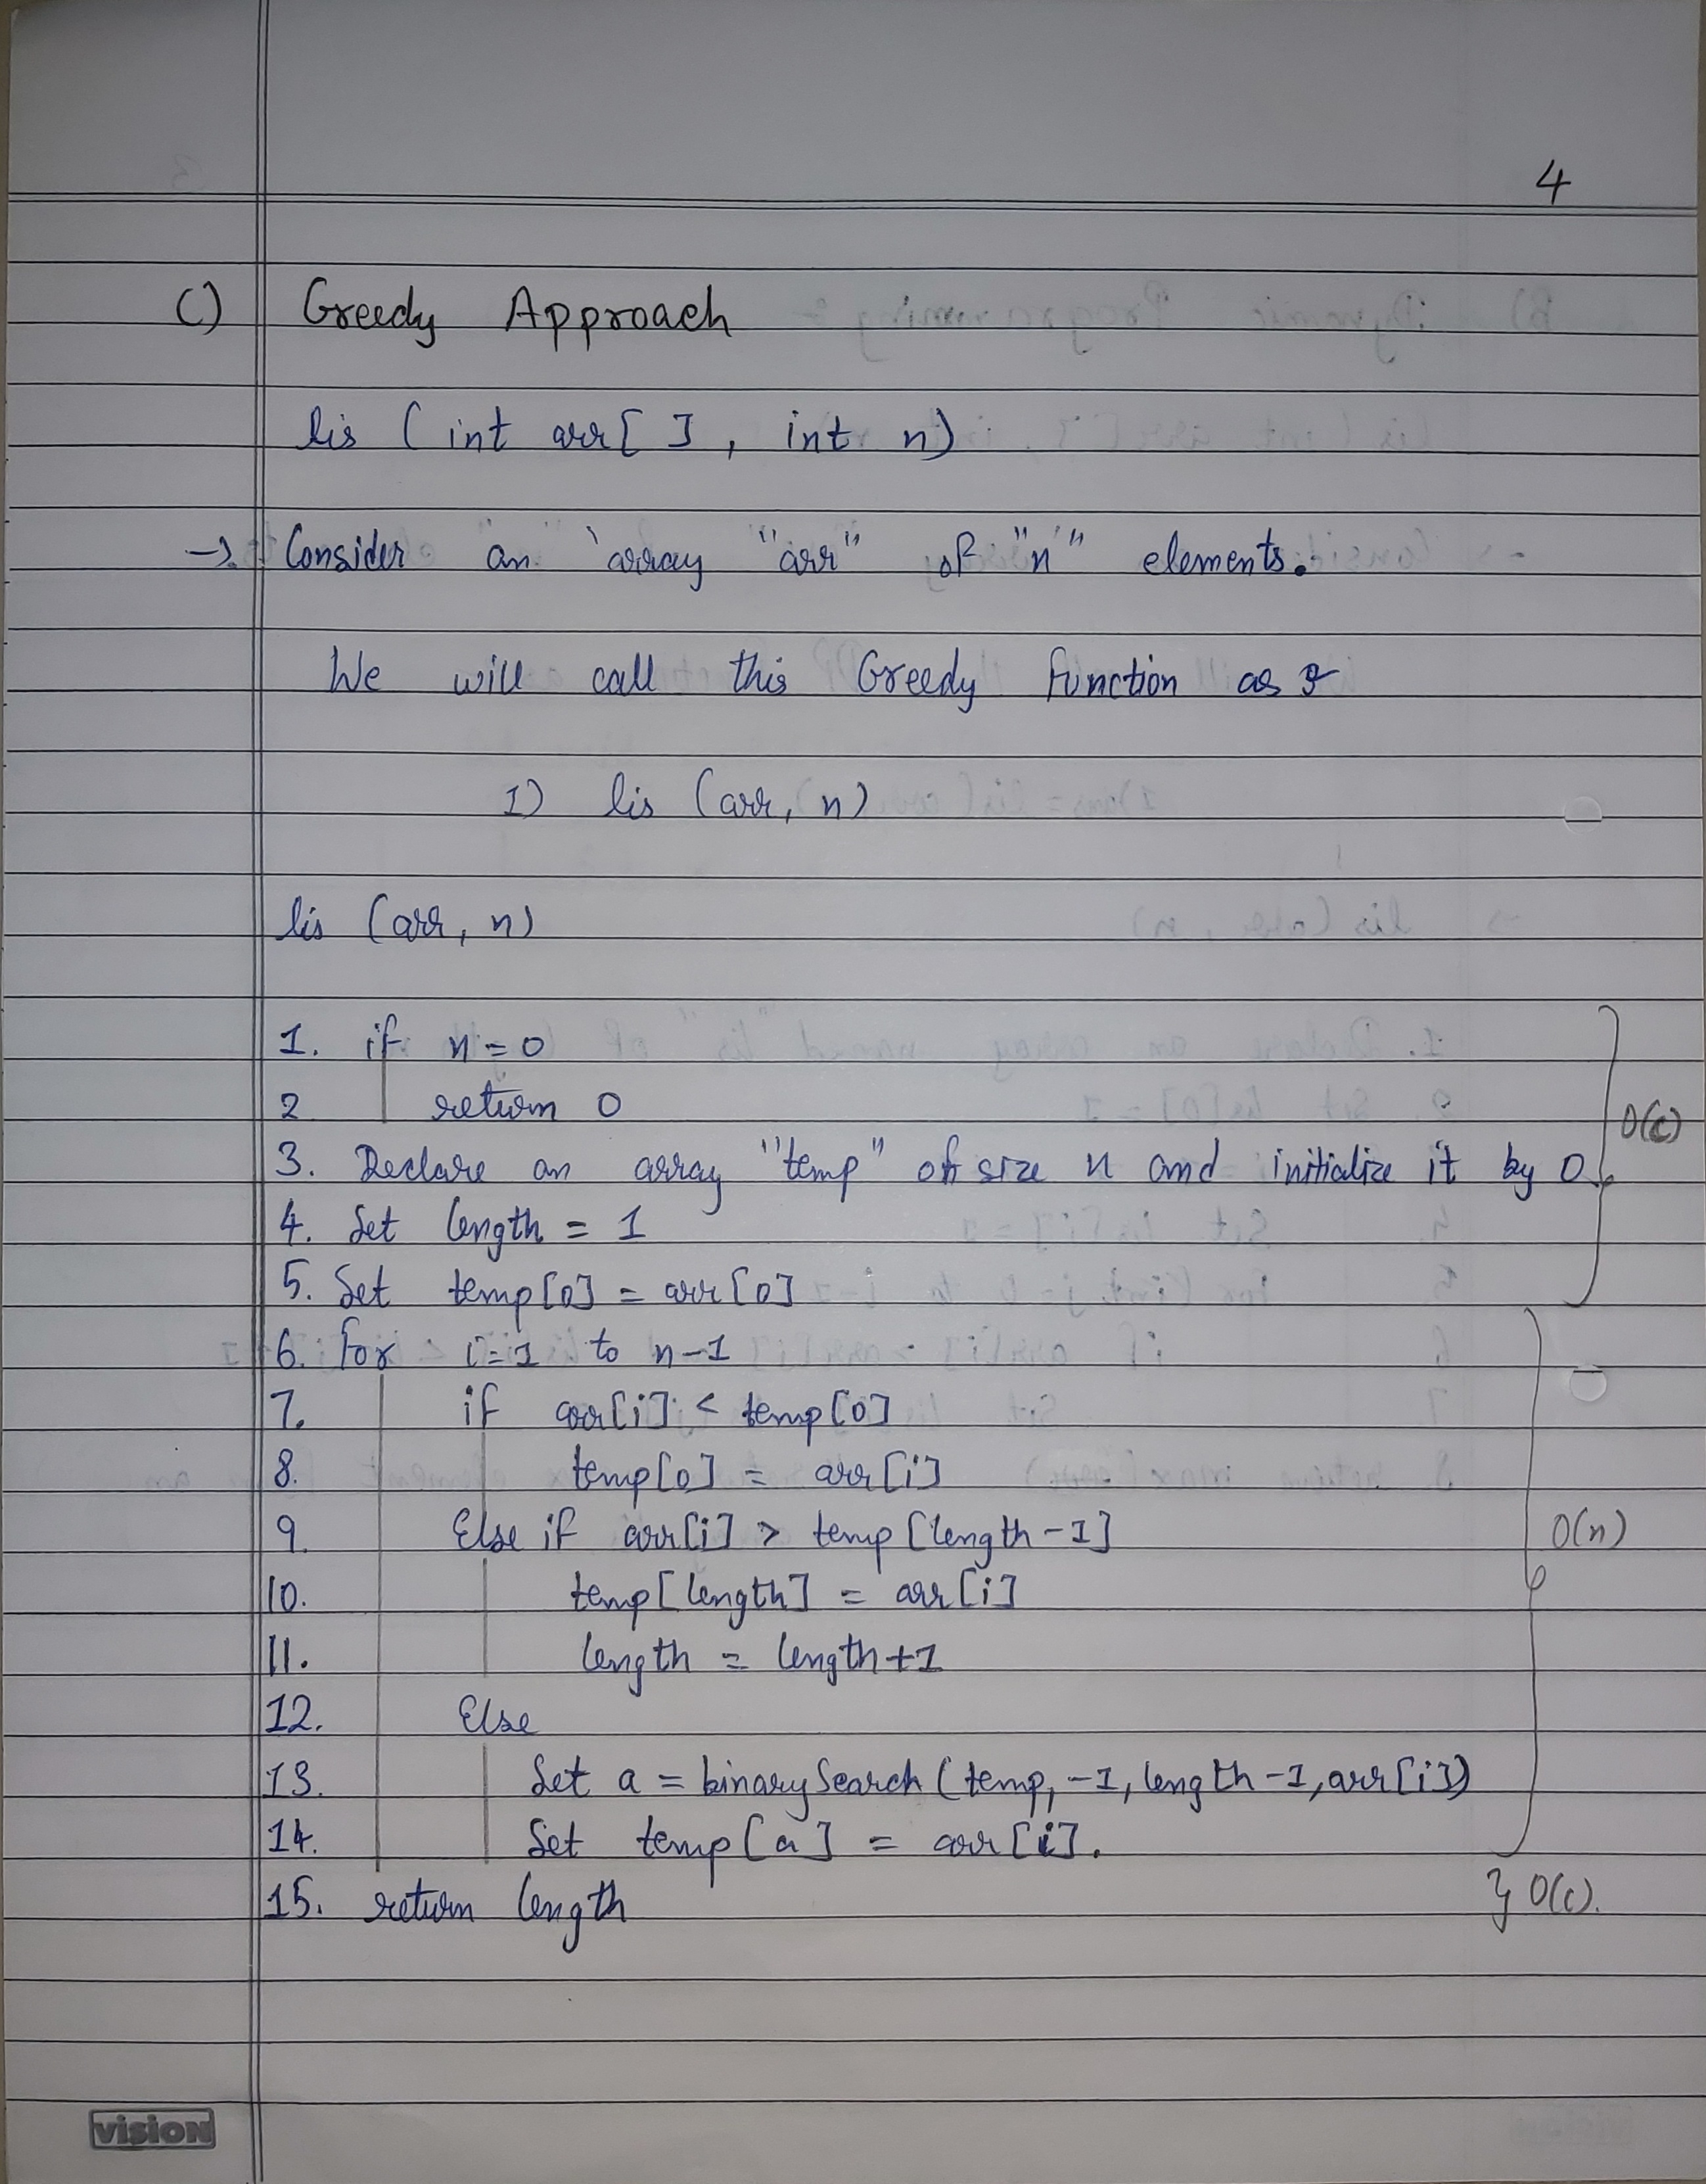 4
C) Greedy Approach
lis (int arr[ ], int n)
→ Consider an array "arr" of "n" elements.
We will call this Greedy function as :-
1) lis (arr, n)
lis (arr, n)
1. if n = 0
2 return 0
3. Declare an array "temp" of size n and initialize it by 0.
O(c)
4. Set length = 1
5. Set temp[0] = arr[0]
6. for i=1 to n-1
7. if arr[i] < temp[0]
8. temp[0] = arr[i]
9. Else if arr[i] > temp[length-1]
O(n)
10. temp[length] = arr[i]
11. length = length+1
12. Else
13. Set a = binarySearch(temp, -1, length-1, arr[i])
14. Set temp[a] = arr[i].
15. return length
} O(c).
vision